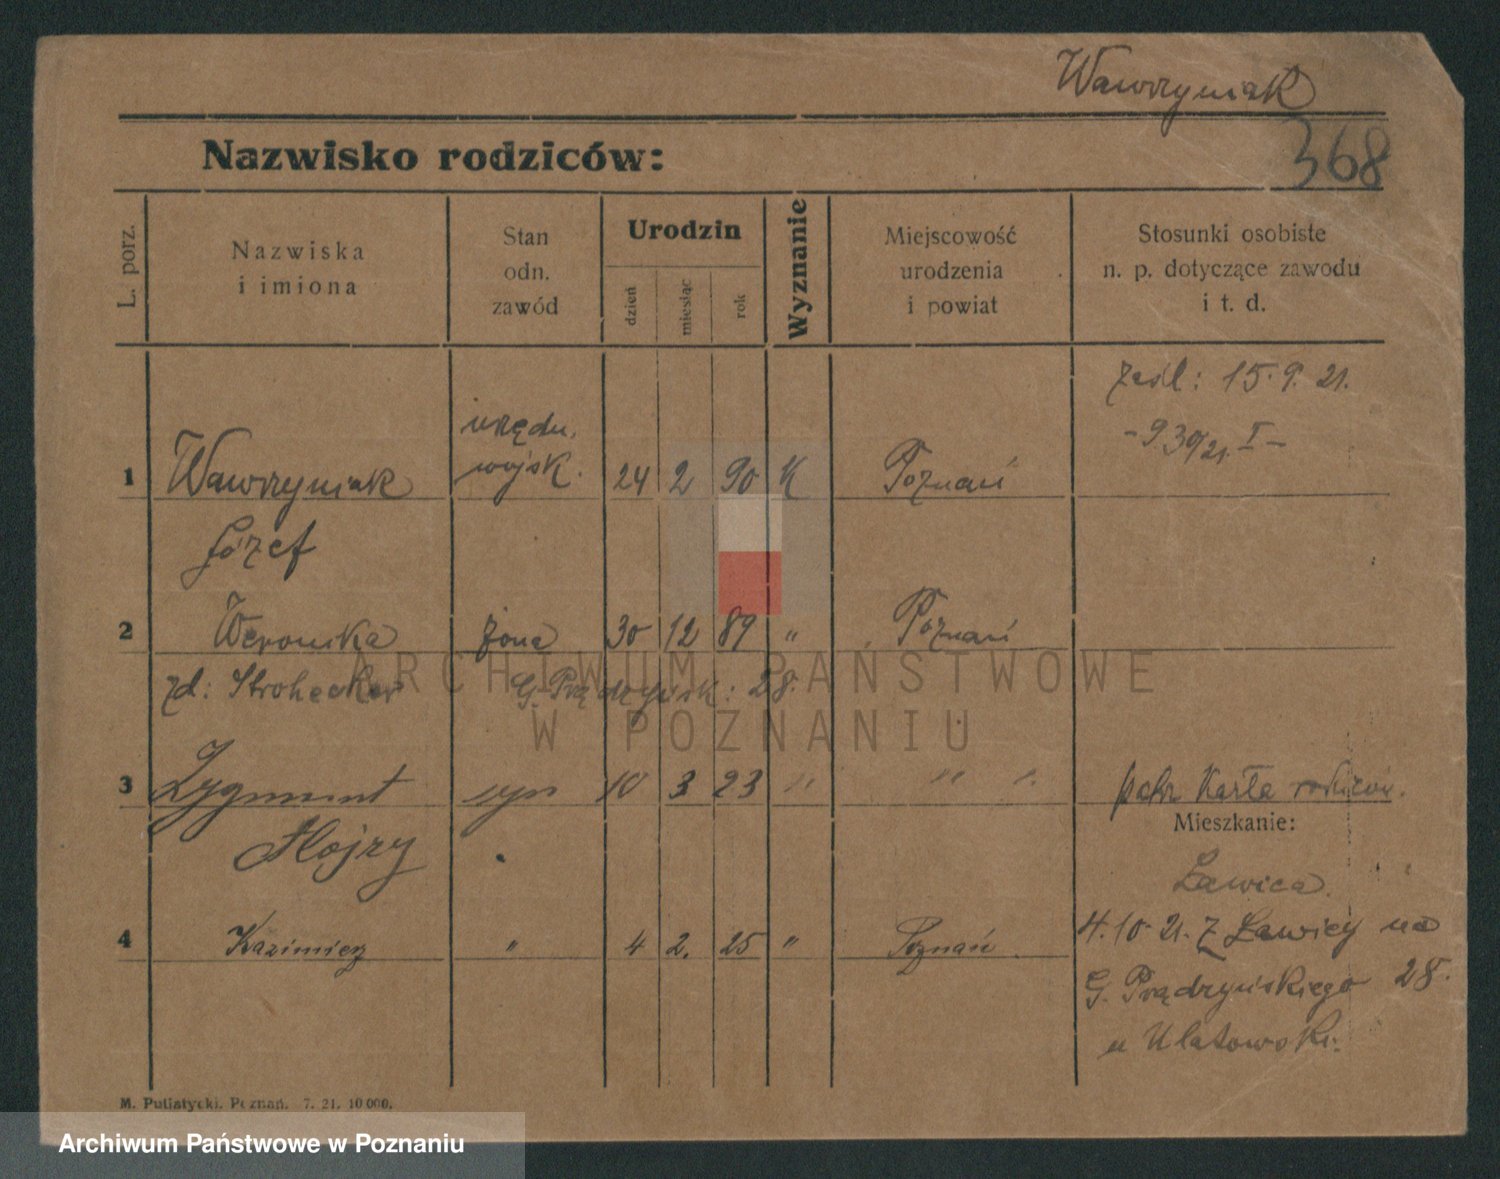 Wawrzyniak
368
Nazwisko rodziców:
L. porz.
Nazwiska
i imiona
Stan
odn.
zawód
Urodzin
dzień
miesiąc
rok
Wyznanie
Miejscowość
urodzenia
i powiat
Stosunki osobiste
n. p. dotyczące zawodu
i t. d.
15. 9. 21.
urzędn.
- 930/21. I -
1 Wawrzyniak wojsk. 24 2 90 K Poznań
Józef
2 Weronika żona 30 12 89 " Poznań
zd: Strohecker G. Prądzyńsk: 28.
ARCHIWUM PAŃSTWOWE
W POZNANIU
3 Zygmunt syn 10 3 23 " " "
Karta rodziców.
Mieszkanie:
Ławica.
4 Kazimierz " 4 2. 25 " Poznań
4. 10. 21. z Ławicy na
G. Prądzyńskiego 28.
u Ulatowski.
M. Putiatycki. Poznań. 7. 21. 10 000.
Archiwum Państwowe w Poznaniu